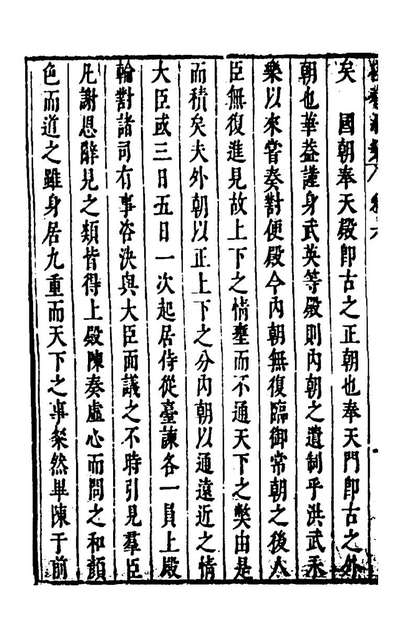 矣　國朝奉天殿卽古之正朝也奉天門卽古之外
朝也華葢謹身武英等殿則內朝之遺制乎洪武永
樂以來嘗奏對便殿今內朝無復臨御常朝之後人
臣無復進見故上下之情壅而不通天下之獘由是
而積矣夫外朝以正上下之分內朝以通遠近之情
大臣或三日五日一次起居侍從臺諫各一員上殿
輪對諸司有事咨決與大臣面議之不時引見羣臣
凡謝恩辭見之類皆得上殿陳奏虛心而問之和顏
色而道之雖身居九重而天下之事粲然畢陳于前